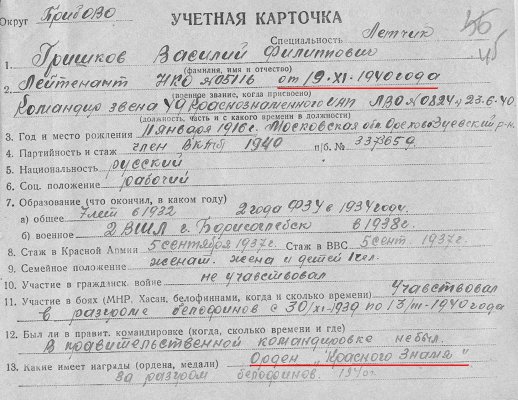 Округ ПрибОВО УЧЕТНАЯ КАРТОЧКА
Специальность Летчик
1. Гришков Василий Филиппович
(фамилия, имя и отчество)
2. Лейтенант НКО №05116 от 19-XI-1940 года
(военное звание, когда присвоено)
Командир звена 49 Краснознаменного ИАП ЛВО №0824 23-6-40
(должность, часть и с какого времени в должности)
3. Год и место рождения 11 января 1916 г. Московская обл. Орехово Зуевский р-н.
4. Партийность и стаж член ВКПб 1940 п/б. № 3373659
5. Национальность русский
6. Соц. положение рабочий
7. Образование (что окончил, в каком году)
а) общее 7 лет в 1932 2 года ФЗУ в 1934 году.
б) военное 2 ВШЛ г. Борисоглебск в 1938 г.
8. Стаж в Красной Армии 5 сентября 1937 г. Стаж в ВВС 5 сент. 1937 г.
9. Семейное положение женат. жена и детей 1 чел.
10. Участие в гражданск. войне не учавствовал
11. Участие в боях (МНР. Хасан, белофиннами, когда и сколько времени) Учавствовал
в разгроме белофинов с 30/XI-1939 по 13/III-1940 года
12. Был ли в правит. командировке (когда, сколько времени и где)
В правительственной командировке не был.
13. Какие имеет награды (ордена, медали) Орден "Красного Знамя"
За разгром белофинов. 1940г.